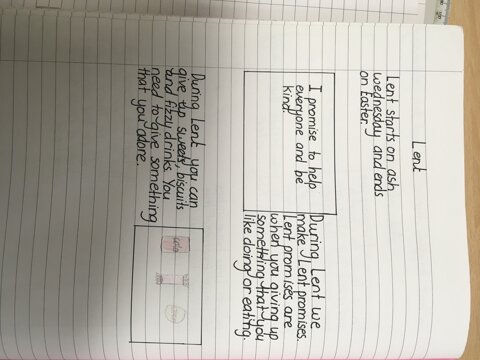 Lent
Lent starts on ash
wednesday and ends
on Easter.
I promise to help
everyone and be
kind
During Lent we
make Lent promises.
Lent promises are
when you giving up
something that you
like doing or eating.
During Lent you can
give up sweets, biscuits
and fizzy drinks. You
need to give something
that you adore.
cola